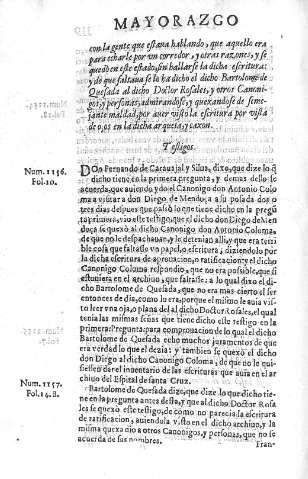 MAYORAZGO
con la gente que estaua hablando, que aquello era
para echarle por un corredor, y otras razones, y se
quedò en este estado, sin hallarse la dicha escritura:
y de que faltaua se la ha dicho el dicho Bartolome de
Quesada al dicho Doctor Rosales, y otros Canoni-
gos, y personas, admirandose, y quexandose de seme-
jante maldad, por auer visto la escritura por vista
de ojos en la dicha arqueta, y caxon.
Testigos.
Num. 1156.
Fol. 10.
DOn Fernando de Carauajal y Silua, dixo, que dize lo q̃
dicho tiene en la primera pregunta, y demas dello se
acuerda, que auiendo ydo el Canonigo don Antonio Colo-
ma a visitar a don Diego de Mendoça a su posada dos o
tres dias despues que passò lo que tiene dicho en la pregũ
ta primera, vio este testigo, que el dicho don Diego de Men
doça se quexò al dicho Canonigo don Antonio Coloma,
de que no le despachauan, y le detenian alli, y que era terri
ble cosa que faltasse vn papel, o escritura, diziendolo por
la dicha escritura de aprouacion, o ratificacion y el dicho
Canonigo Coloma respondio, que no era possible, que si
estuuiera en el archiuo, que faltasse: a lo qual dixo el di-
cho Bartolome de Quesada, que no era mas cierto el ser
entonces de dia, como lo era, porque el mismo le auia vis-
to leer vna oja, o plana del al dicho Doctor Rosales, el qual
tenia las mismas señas que tiene dicho este testigo en la
primera Pregunta, para comprouacion de lo qual el dicho
Bartolome de Quesada echo muchos juramentos de que
era verdad lo que el dezia: y tambien se quexò el dicho
don Diego al dicho Canonigo Coloma, de que no le qui-
siessen dar el inuentario de las escrituras que auia en el ar
chiuo del Espital de santa Cruz.
Num. 1157.
Fol. 14. B.
Bartolome de Quesada dize, que dize lo que dicho tie-
ne en la pregunta antes desta, y que al dicho Doctor Rosa
les se quexò este testigo, de como no parecia la escritura
de ratificacion, auiendola visto en el dicho archiuo, y la
misma quexa dio a otros Canonigos, y personas, que no se
acuerda de sus nombres.
Fran-